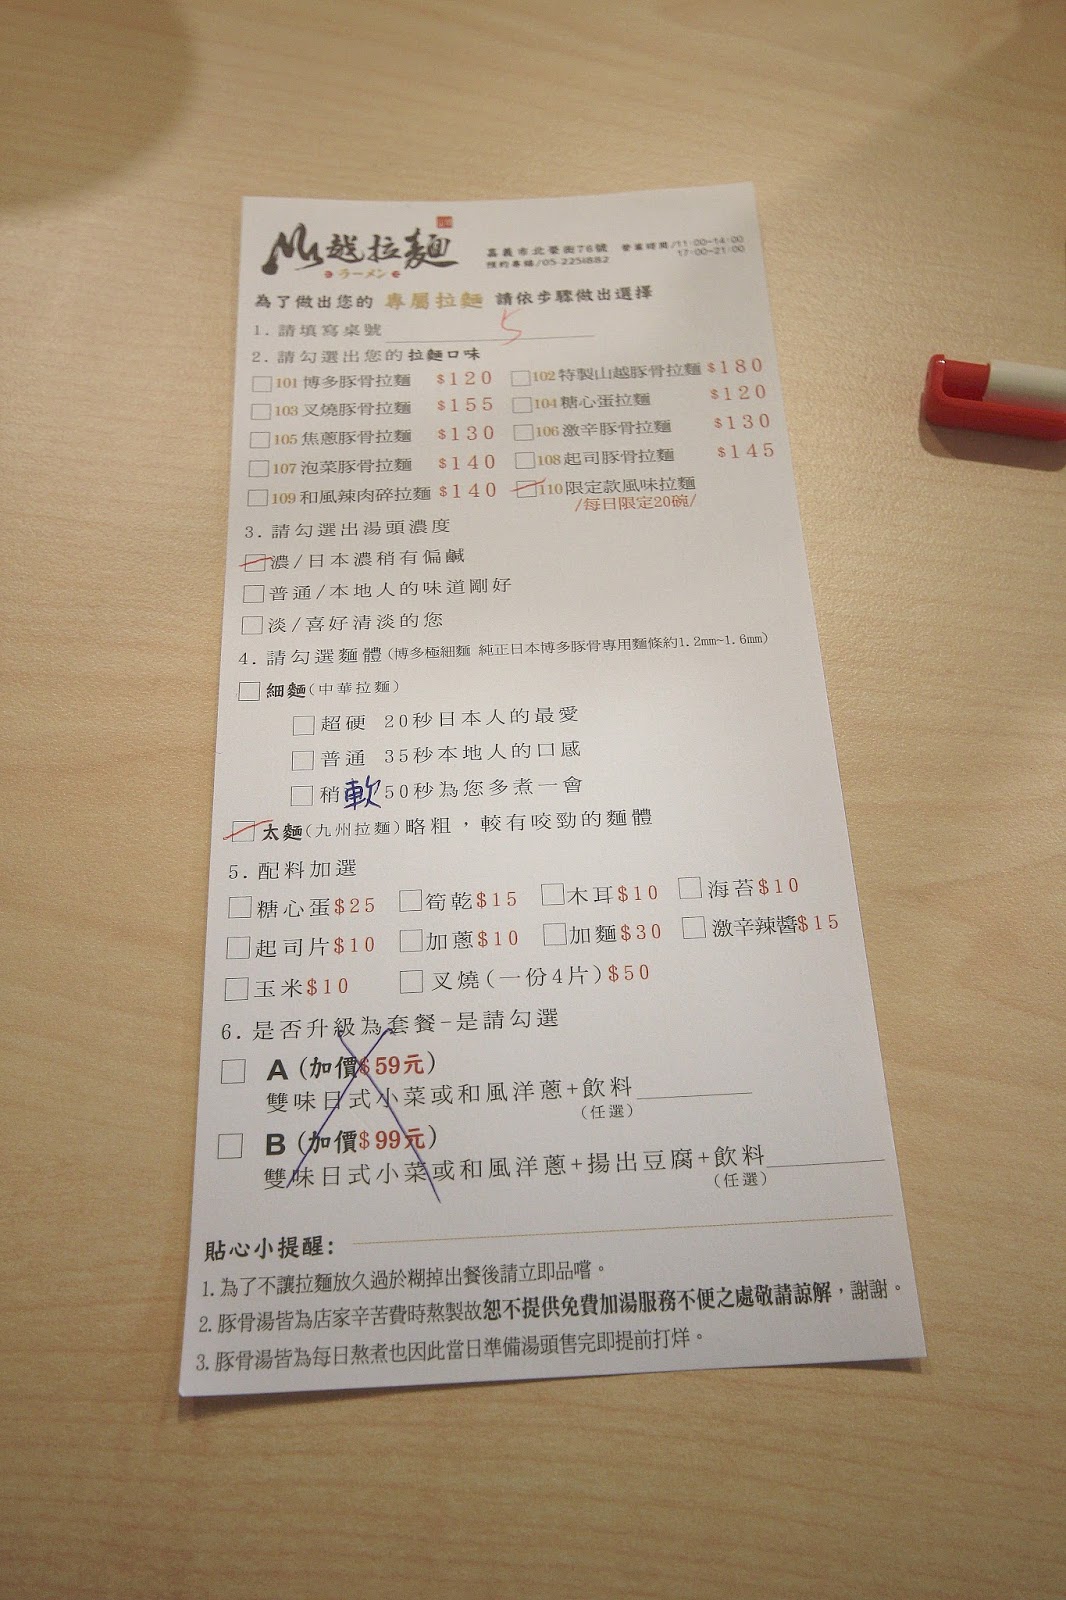 山越拉麵
ラーメン
嘉義市北榮街76號 營業時間/11:00~14:00
預約專線/05-2251882 17:00~21:00
為了做出您的 專屬拉麵 請依步驟做出選擇
1. 請填寫桌號 5
2. 請勾選出您的拉麵口味
101 博多豚骨拉麵 $120 102 特製山越豚骨拉麵 $180
103 叉燒豚骨拉麵 $155 104 糖心蛋拉麵 $120
105 焦蔥豚骨拉麵 $130 106 激辛豚骨拉麵 $130
107 泡菜豚骨拉麵 $140 108 起司豚骨拉麵 $145
109 和風辣肉碎拉麵 $140 110 限定款風味拉麵
/每日限定20碗/
3. 請勾選出湯頭濃度
濃/日本濃稍有偏鹹
普通/本地人的味道剛好
淡/喜好清淡的您
4. 請勾選麵體(博多極細麵 純正日本博多豚骨專用麵條約1.2mm~1.6mm)
細麵(中華拉麵)
超硬 20秒日本人的最愛
普通 35秒本地人的口感
稍軟 50秒為您多煮一會
太麵(九州拉麵)略粗，較有咬勁的麵體
5. 配料加選
糖心蛋$25 筍乾$15 木耳$10 海苔$10
起司片$10 加蔥$10 加麵$30 激辛辣醬$15
玉米$10 叉燒(一份4片)$50
6. 是否升級為套餐-是請勾選
A (加價$59元)
雙味日式小菜或和風洋蔥+飲料
(任選)
B (加價$99元)
雙味日式小菜或和風洋蔥+揚出豆腐+飲料
(任選)
貼心小提醒:
1. 為了不讓拉麵放久過於糊掉出餐後請立即品嚐。
2. 豚骨湯皆為店家辛苦費時熬製故恕不提供免費加湯服務不便之處敬請諒解，謝謝。
3. 豚骨湯皆為每日熬煮也因此當日準備湯頭售完即提前打烊。